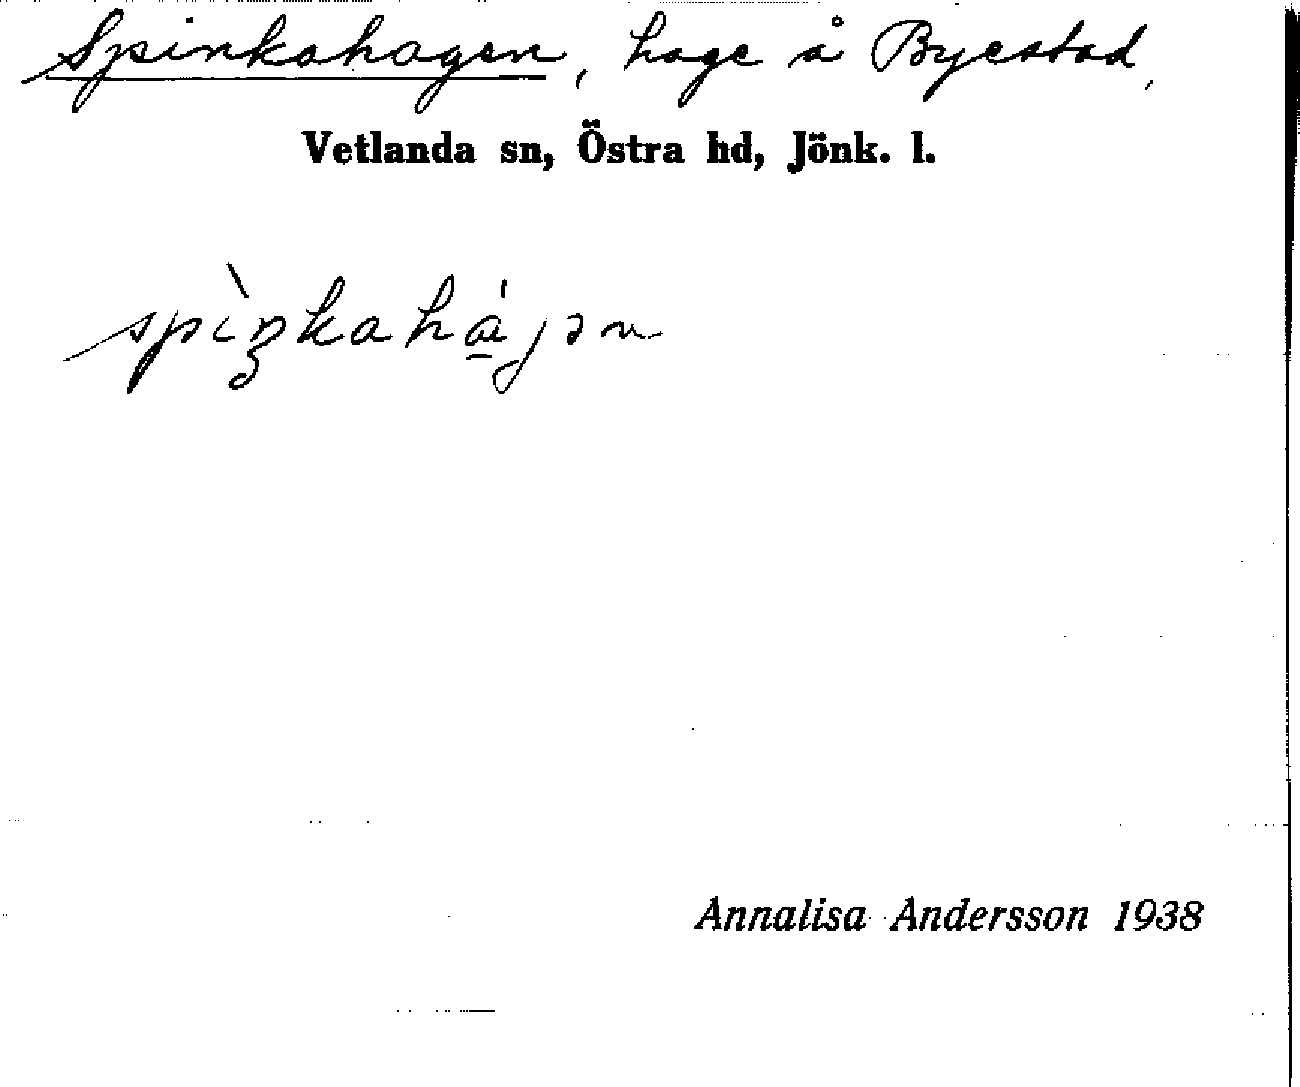 Spinkahagen, hage å Byestad,
Vetlanda sn, Östra hd, Jönk. l.
spìŋkahá̱jən
Annalisa Andersson 1938